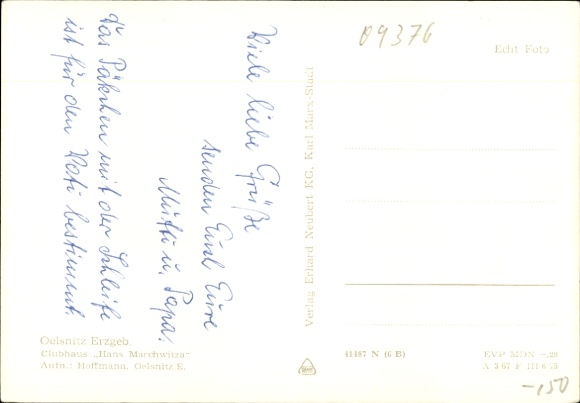 Viele liebe Grüße
senden Euch Eure
Mutti u. Papa.
Das Päkchen mit der Schleife
ist für den Vati bestimmt.
09376
Echt Foto
Verlag Erhard Neubert KG, Karl-Marx-Stadt
Oelsnitz Erzgeb.
Clubhaus „Hans Marchwitza"
Aufn.: Hoffmann, Oelsnitz E.
41487 N (6 B)
EVP MDN -,20
-,50